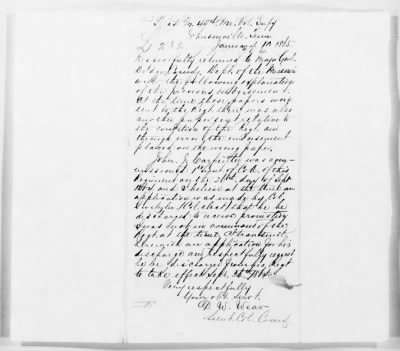 Hd Qrs 45th Mo. Vol. Infy
Johnsonville, Tenn
January 10. 1865
Respectfully returned to Major Genl
of the Missouri
with the following explanation
of the previous endorsement.
At the time these papers were
sent to the Regt there was also
another paper sent relative to
the condition of the Regt and
through error the endorsement
placed on the wrong paper.
John J. Carpenter was com-
missioned 1st Lieut of Co. A. of this
Regiment on the day of Sept
1864 and I believe at the time an
application was made by Col
that he be
discharged to receive promotion
I was not in command of the
Regt at the time. I transmit
herewith an application for his
discharge and respectfully request
he be discharged from Regt
to take effect Sept. 1864
Very respectfully
Your obt. Servt.
D. W. Wear
Lieut Col. Comdg